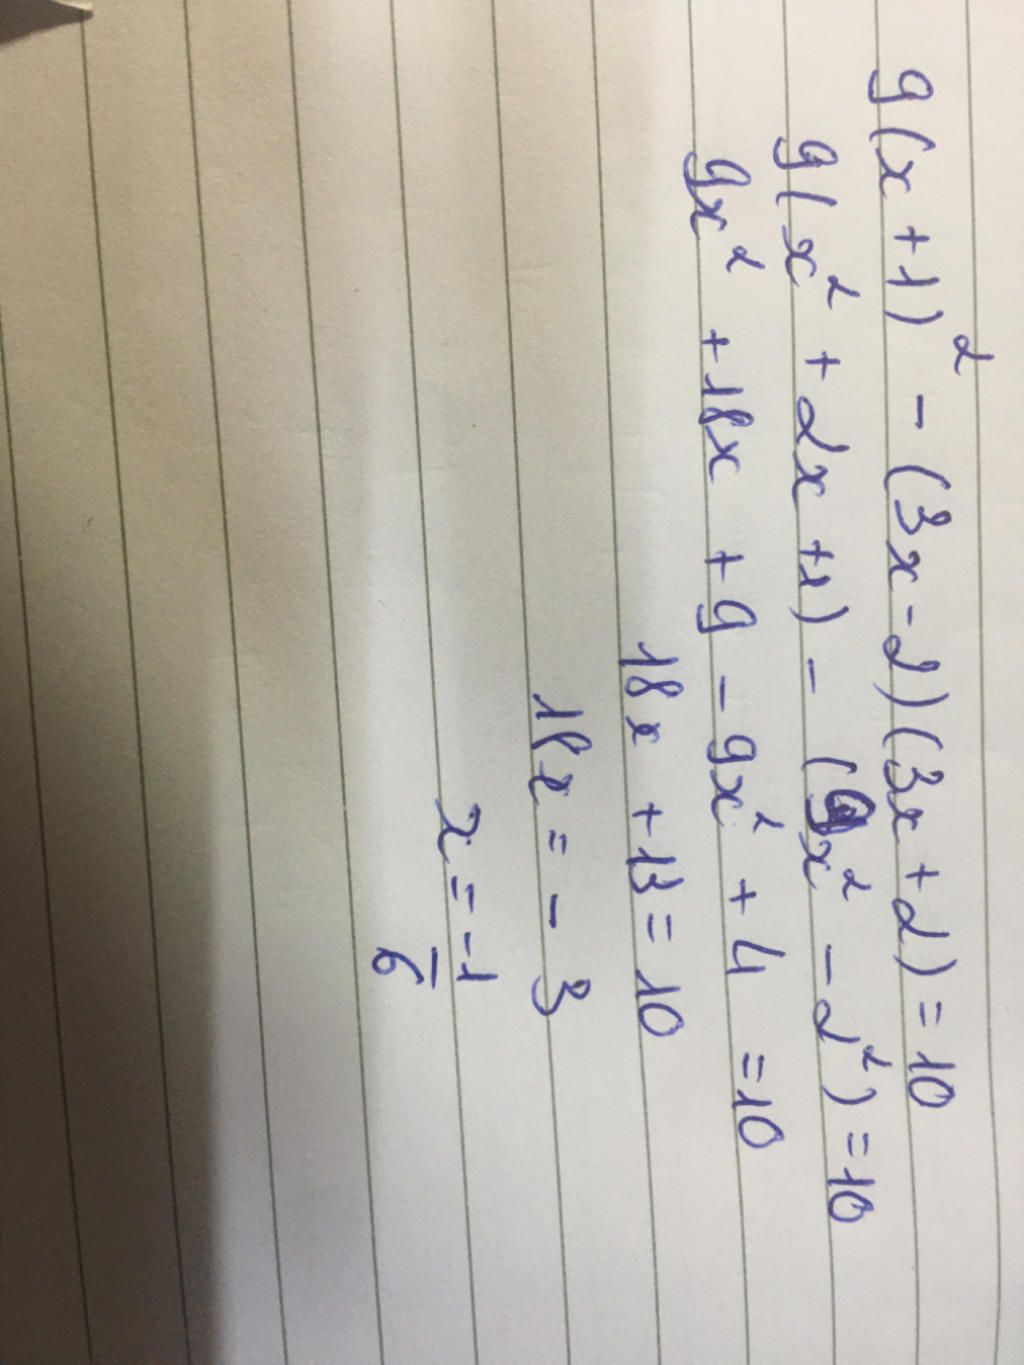 9(x+1)² - (3x-2)(3x+2) = 10
9(x² + 2x +1) - (9x² - 2²) = 10
9x² + 18x + 9 - 9x² + 4 = 10
18x + 13 = 10
18x = - 3
x = -1/6